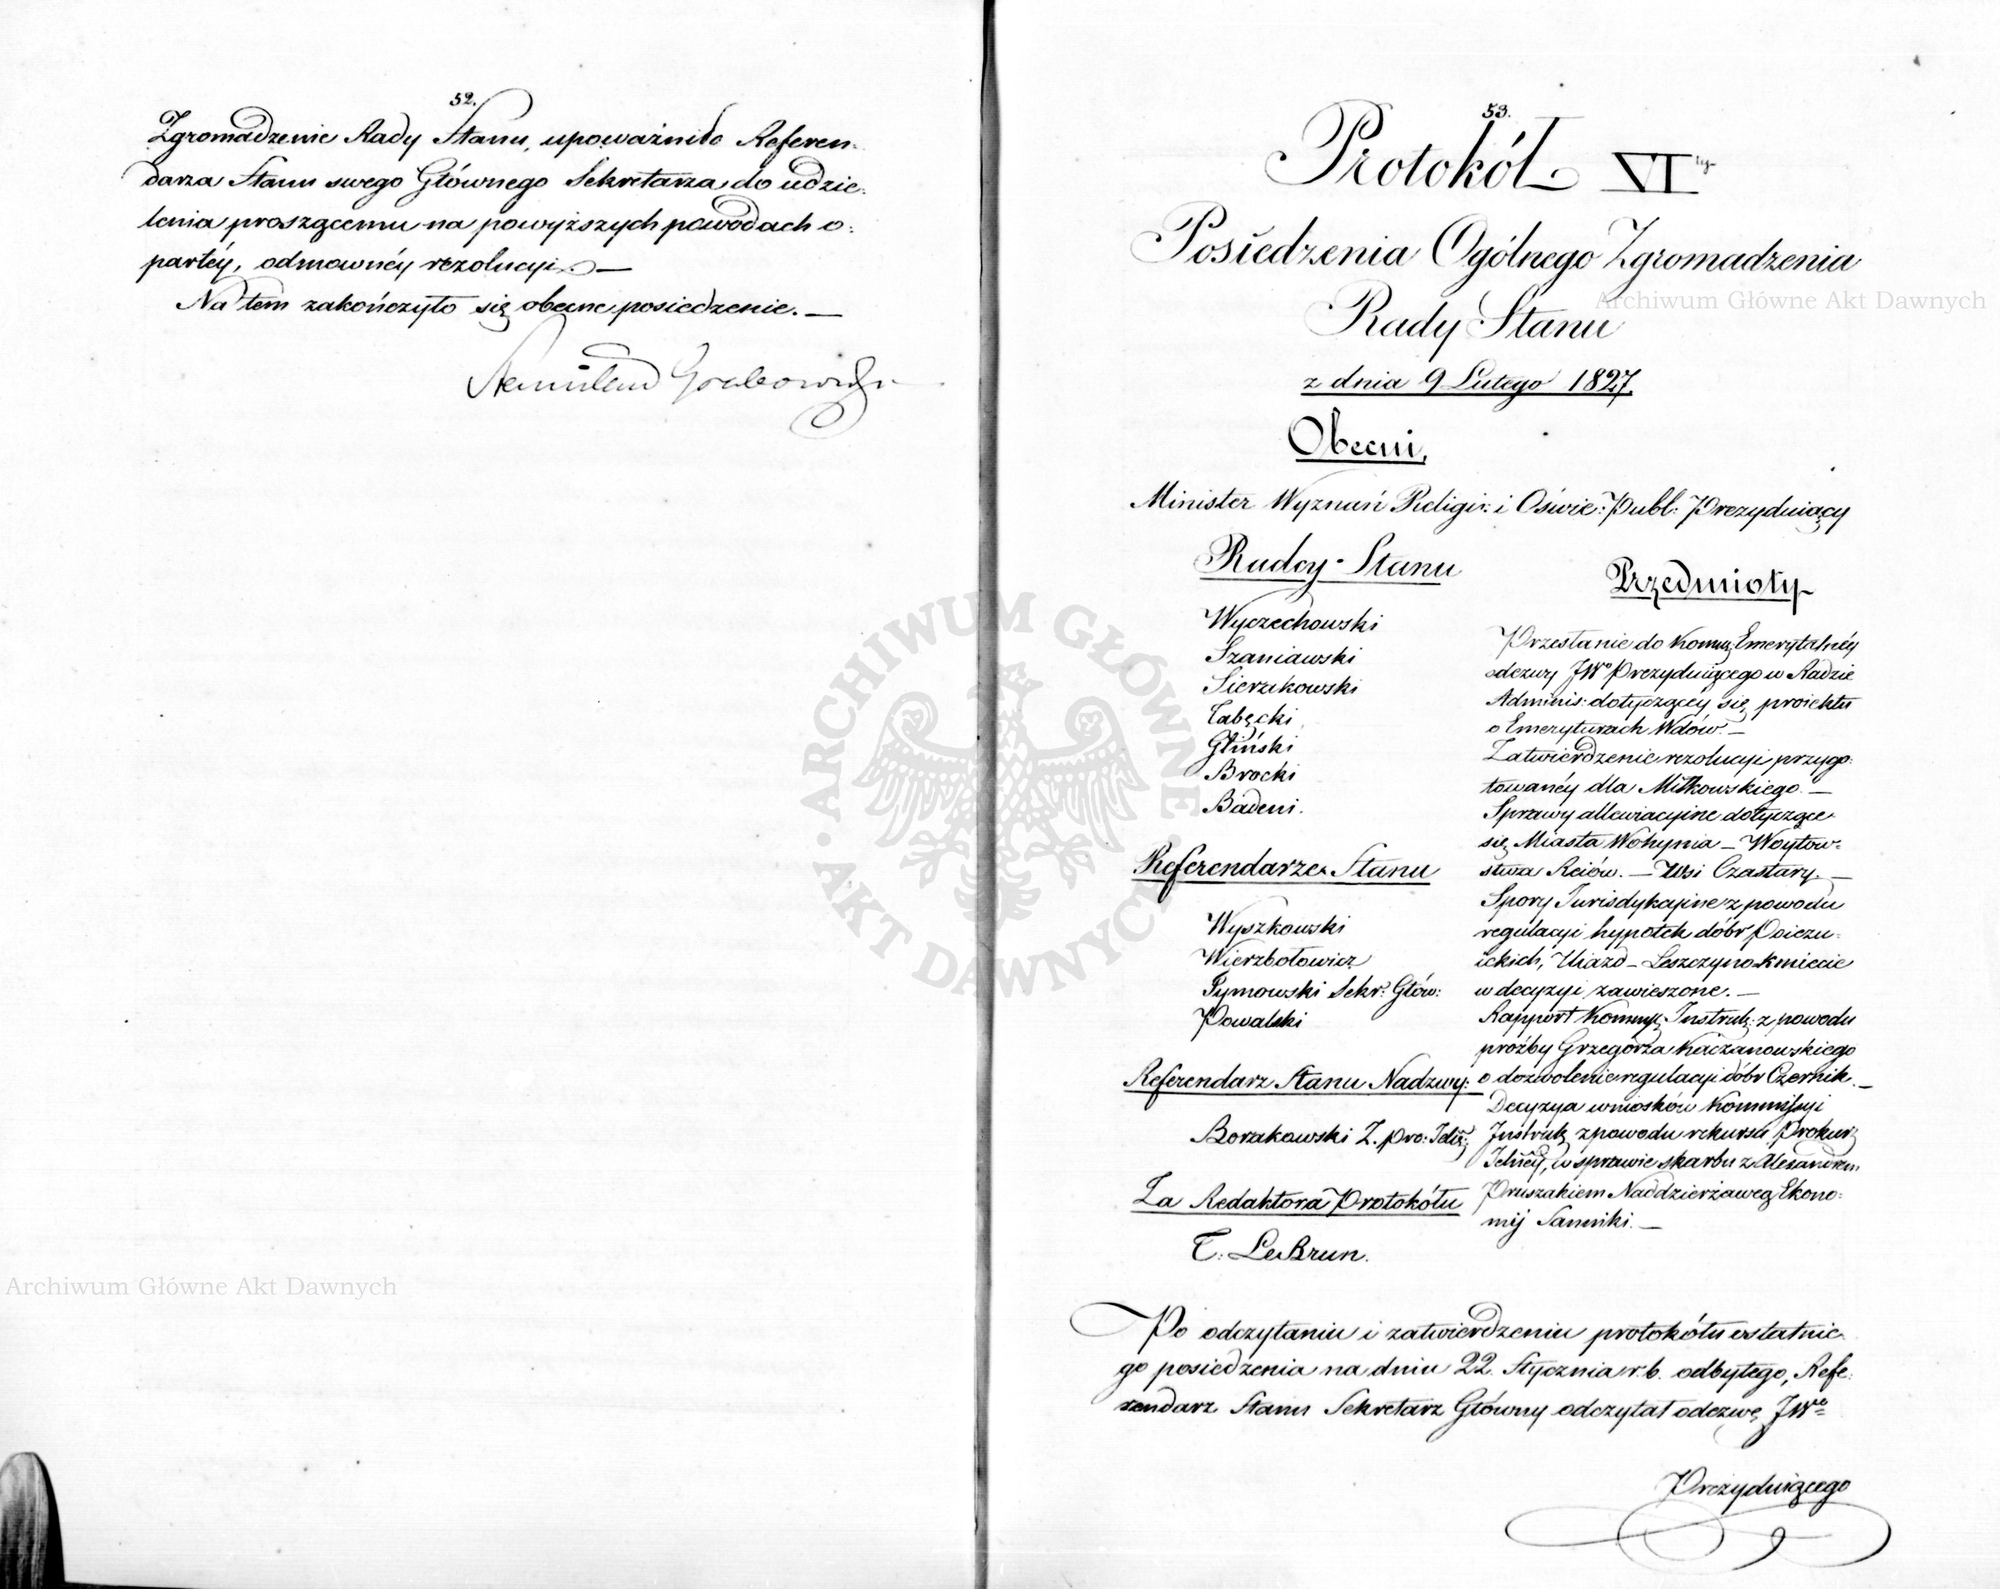 52.
Zgromadzenie Rady Stanu, upoważniło Referen:
darza Stanu swego Głównego Sekretarza do udzie:
lenia proszącemu na powyższych powodach o:
partéy, odmownéy rezolucyi. —
Na tem zakończyło się obecne posiedzenie. —
Stanisław Grabowski
53.
Protokół VI ty
Posiedzenia Ogólnego Zgromadzenia
Rady Stanu
z dnia 9 Lutego 1827.
Obecni,
Minister Wyznań Religii: i Oświe: Publ: Prezyduiący
Radcy Stanu
Wyczechowski
Szaniawski
Sierakowski
Łabęcki
Gliński
Brocki
Badeni.
Referendarze Stanu
Wyszkowski
Wierzbołowicz
Tymowski Sekr: Głów:
Powalski
Referendarz Stanu Nadzwy:
Borakowski Z. pro:
Za Redaktora Protokółu
T: LeBrun.
Przedmioty
Przesłanie do Kommis Emerytalnéy
odezwy JWo Prezyduiącego w Radzie
Adminis: dotyczącéy się proiektu
o Emeryturach Wdów. —
Zatwierdzenie rezolucyi przygo:
towanéy dla Miłkowskiego. —
Sprawy allewiacyine dotyczące
się Miasta Wohynia — Woytow:
stwa Reiów. — Wsi Czastary. —
Spory Jurisdykcyine z powodu
regulacyi hypotek dóbr
Uiazd — Leszczyno-Kmiecie
w decyzyi zawieszone. —
Rapport Kommis Instruk: z powodu
prożby Grzegorza Kaczanowskiego
o dozwolenie regulacyi dóbr Czernik. —
Decyzya wniosków Kommissyi
Instruk z powodu rekursu Prokur
w sprawie skarbu z Alexandrem
Pruszakiem Naddzierżawcą Ekono:
mij Sanniki. —
Po odczytaniu i zatwierdzeniu protokółu ostatnie
go posiedzenia na dniu 22. Stycznia r. b. odbytego, Refe:
rendarz Stanu Sekretarz Główny odczytał odezwę JWo
Prezyduiącego
Archiwum Główne Akt Dawnych
Archiwum Główne Akt Dawnych
ARCHIWUM GŁÓWNE AKT DAWNYCH